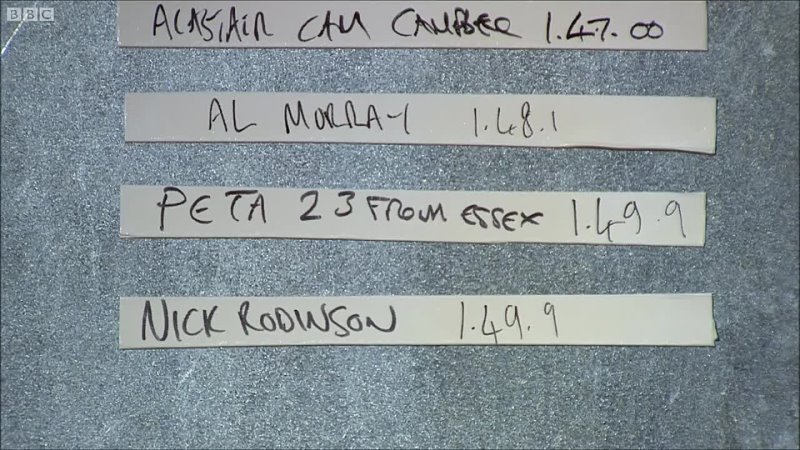 BBC
ALASTAIR CAM CAMPBELL 1.47.00
AL MURRAY 1.48.1
PETA 23 FROM ESSEX 1.49.9
NICK RODINSON 1.49.9